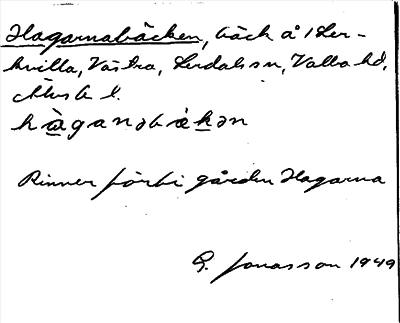 Hagarnabäcken, bäck å 1 Ler-
kvilla, Västra, Lerdalssn, Valbo hd,
Älvsb l.
hàganəbäkən
Rinner förbi gården Hagarna
G. Jonasson 1949